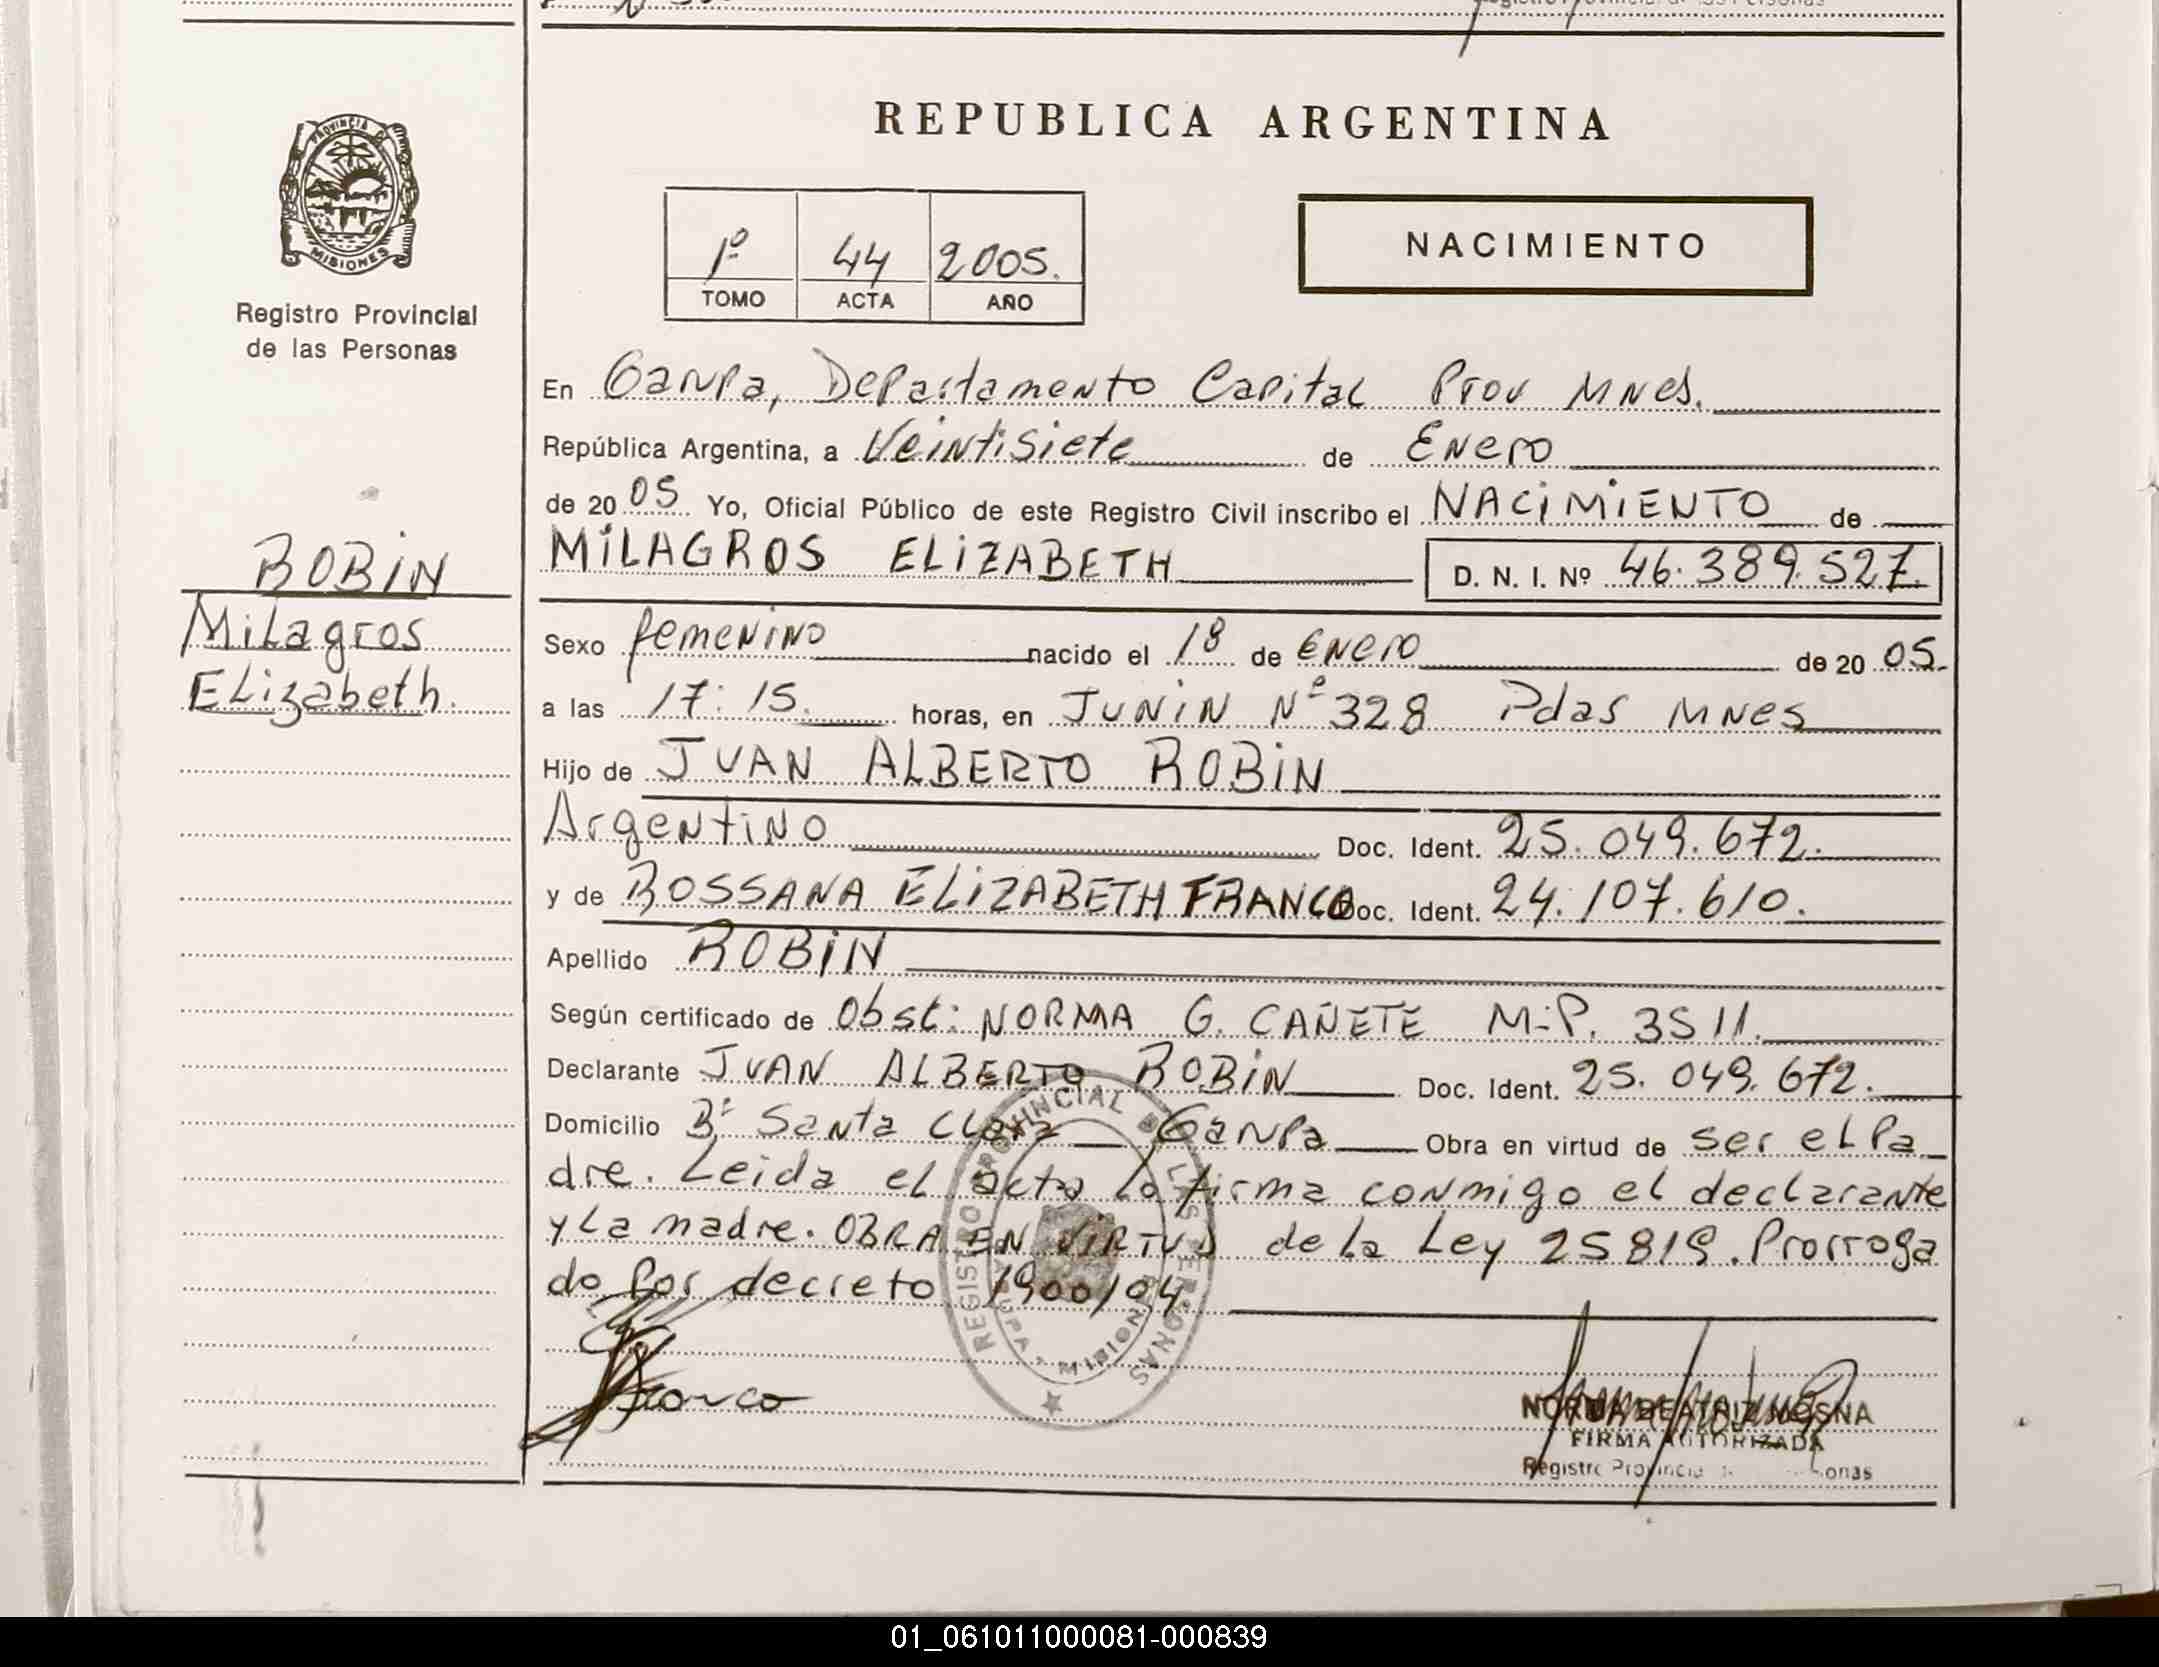 REPUBLICA ARGENTINA
PROVINCIA D
MISIONES
Registro Provincial
de las Personas
1º 44 2005.
TOMO ACTA AÑO
NACIMIENTO
En Garupa, Departamento Capital Prov MNes.
República Argentina, a Veintisiete de Enero
de 2005 Yo, Oficial Público de este Registro Civil inscribo el NACIMIENTO de
MILAGROS ELIZABETH D. N. I. Nº 46.389.527.
ROBIN
Milagros
Elizabeth.
Sexo femenino nacido el 18 de Enero de 2005.
a las 17:15. horas, en JUNIN Nº 328 Pdas MNes
Hijo de JUAN ALBERTO ROBIN
Argentino Doc. Ident. 25.049.672.
y de ROSSANA ELIZABETH FRANCO Doc. Ident. 24.107.610.
Apellido ROBIN
Según certificado de Obst: NORMA G. CAÑETE M.P. 3511.
Declarante JUAN ALBERTO ROBIN Doc. Ident. 25.049.672.
Domicilio Bº Santa Clara Garupa Obra en virtud de ser el Pa
dre. Leida el acta la firma conmigo el declarante
y la madre. OBRA EN VIRTUD de la Ley 25819. Prorroga
do por decreto 1900/04
REGISTRO PROVINCIAL DE LAS PERSONAS
MISIONES
Franco
NORMA BEATRIZ MOSNA
FIRMA AUTORIZADA
Registro Provincial onas
01_061011000081-000839